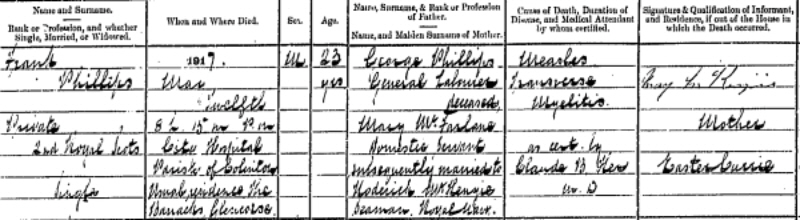 Name and Surname.
Rank or Profession, and whether
Single, Married, or Widowed.
When and Where Died.
Sex.
Age.
Name, Surname, & Rank or Profession
of Father.
Name, and Maiden Surname of Mother.
Cause of Death, Duration of
Disease, and Medical Attendant
by whom certified.
Signature & Qualification of Informant,
and Residence, if out of the House in
which the Death occurred.
Frank
Phillips
Private
2nd Royal Scots
Single
1917.
May
twelfth
8 h. 15 m P.m
City Hospital
Parish of Colinton
Usual residence The
Barracks, Glencorse.
M
23
yrs
George Phillips
General Labourer
deceased
Mary McFarlane
Domestic Servant
subsequently married to
Roderick McKenzie
Seaman, Royal Navy.
Measles
Transverse
Myelitis.
as cert. by
Claude B. Ker
M. D
Mother
Easter Currie